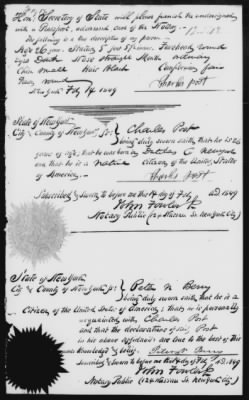 Hon. Secretary of State will please furnish the undersigned
with a Passport,
the following is the description of my person
Age 26 years, Stature 5 feet 8 inches, Forehead round
Eyes Dark Nose Straight Mouth ordinary
Chin small Hair Black Complexion fair
Face round
New York Feby 14 1849 Charles Post
State of New York
City & County of New York ss: Charles Post
being duly sworn saith that he is 26
years of age, that he was born in Dutchess Co New York
and that he is a native citizen of the United States
of America.
Charles Post
Subscribed & sworn to before me this 14 day of Feby AD. 1849
John Fowler Jr
Notary Public (124 Nassau St. New York City)
State of New York
City & County of New York ss: Peter N Berry
being duly sworn saith that he is a
Citizen of the United States of America, that he is personally
acquainted with Charles Post
and that the declarations of said Post
in his above affidavit are true to the best of his
knowledge & belief. Peter N Berry
Sworn to before me this 14 day of Feby AD. 1849
John Fowler Jr
Notary Public (124 Nassau St. New York City)